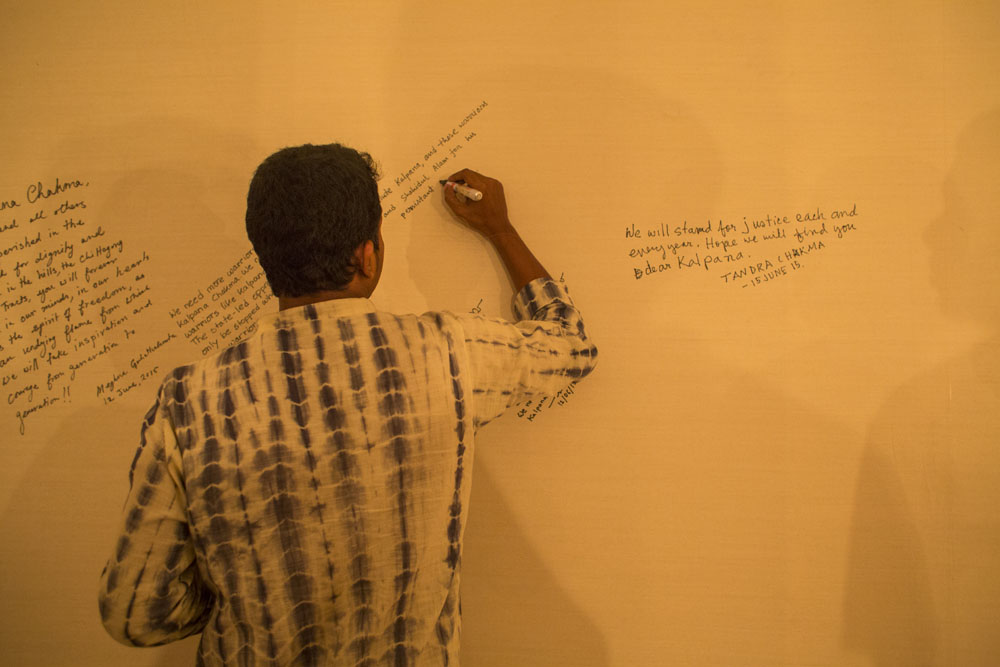 na Chakma,
and all others
perished in the
for dignity and
in the hills, the Chittagong
Tracts, you will forever
in our minds, in our hearts
the spirit of freedom, as
an undying flame from which
we will take inspiration and
courage from generation to
generation!!
Meghna Guhathakurta
12 June, 2015
We need more warrior
Kalpana Chakma. We
warriors like Kalpana
The state-led oppre
only be stopped
warriors
Kalpana, and these wonderful
and Shahidul Alam for his
persistant
Kalpana
We will stand for justice each and
every year. Hope we will find you
dear Kalpana.
TANDRA CHAKMA
- 15 JUNE 15.